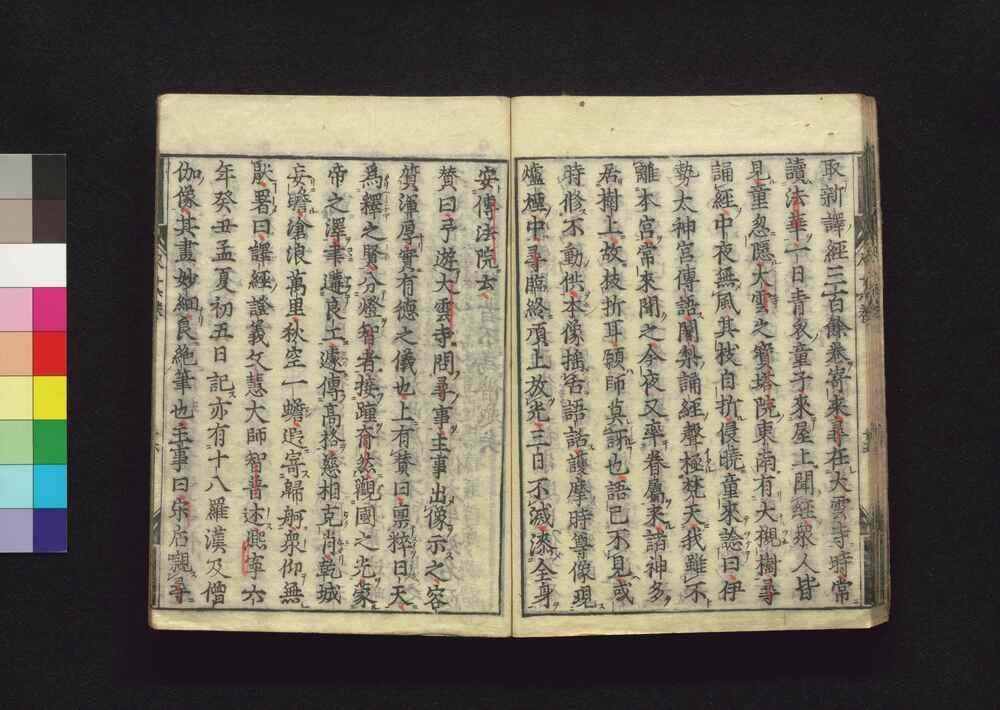 取新譯經三百餘卷寄來尋在大雲寺時常
讀法華一日青衣童子來屋上聞經衆人皆
見童忽隱大雲之寶塔院東南有大槻樹尋
誦經中夜無風其枝自折侵曉童來諗曰伊
勢太神宮傳語闍梨誦經聲極梵天我雖不
離本宮常來聞之今夜又率眷屬來諸神多
居樹上故枝折耳願師莫訝也語已不見或
時修不動供本像搖舌語話護摩時尊像現
爐煙中尋臨終頂上放光三日不滅漆全身
安傳法院云
贊曰予遊大雲寺問尋事主事出像示之容
質渾厚實有德之儀也上有贊曰禀粹日天
為釋之賢分燈智者接踵有然觀國之光蒙
帝之澤聿遴良工遽傳高格慈相克肖乾城
妄瞻滄浪萬里秋空一蟾迨寄歸舸衆仰無
厭署曰譯經證義文慧大師智普述熙寧六
年癸丑孟夏初五日記亦有十八羅漢及僧
伽像其畫妙細良絕筆也主事曰宋后親尋